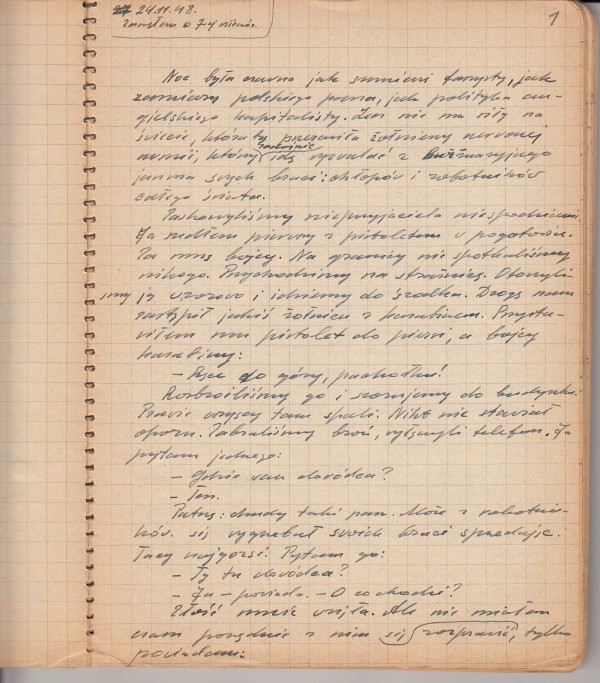 24.11.48.
zacząłem o 7-ej wieczór.
1
Noc była czarna jak sumienie faszysty, jak
zamiary polskiego pana, jak polityka an-
gielskiego kapitalisty. Lecz nie ma siły na
świecie, która by przeraziła żołnierzy czerwonej
armii, którzy idą wyzwalać z burżuazyjnego
spokojnie
jarzma swych braci: chłopów i robotników
całego świata.
Zaskoczyliśmy nieprzyjaciela niespodzianie.
Ja szedłem pierwszy z pistoletem w pogotowiu.
Za mną bojcy. Na granicy nie spotkaliśmy
nikogo. Przychodzimy na strażnicę. Otoczyli
śmy ją wzorowo i idziemy do środka. Drogę nam
zastąpił jakiś żołnierz z karabinem. Przysta-
wiłem mu pistolet do piersi, a bojcy
karabiny:
– Ręce do góry, pachołku!
Rozbroiliśmy go i szorujemy do budynku.
Prawie wszyscy tam spali. Nikt nie stawiał
oporu. Zabraliśmy broń, wyłączyli telefon. Ja
pytam jednego:
– Gdzie wasz dowódca?
– Ten.
Patrzę: chudy taki pan. Może z robotni-
ków się wygrzebał swoich braci sprzedając.
Tacy najgorsi. Pytam go:
– Ty tu dowódca?
– Ja – powiada. – O co chodzi?
Złość mnie wzięła. Ale nie miałem
czasu porządnie z nim się rozprawić, tylko
powiadam: